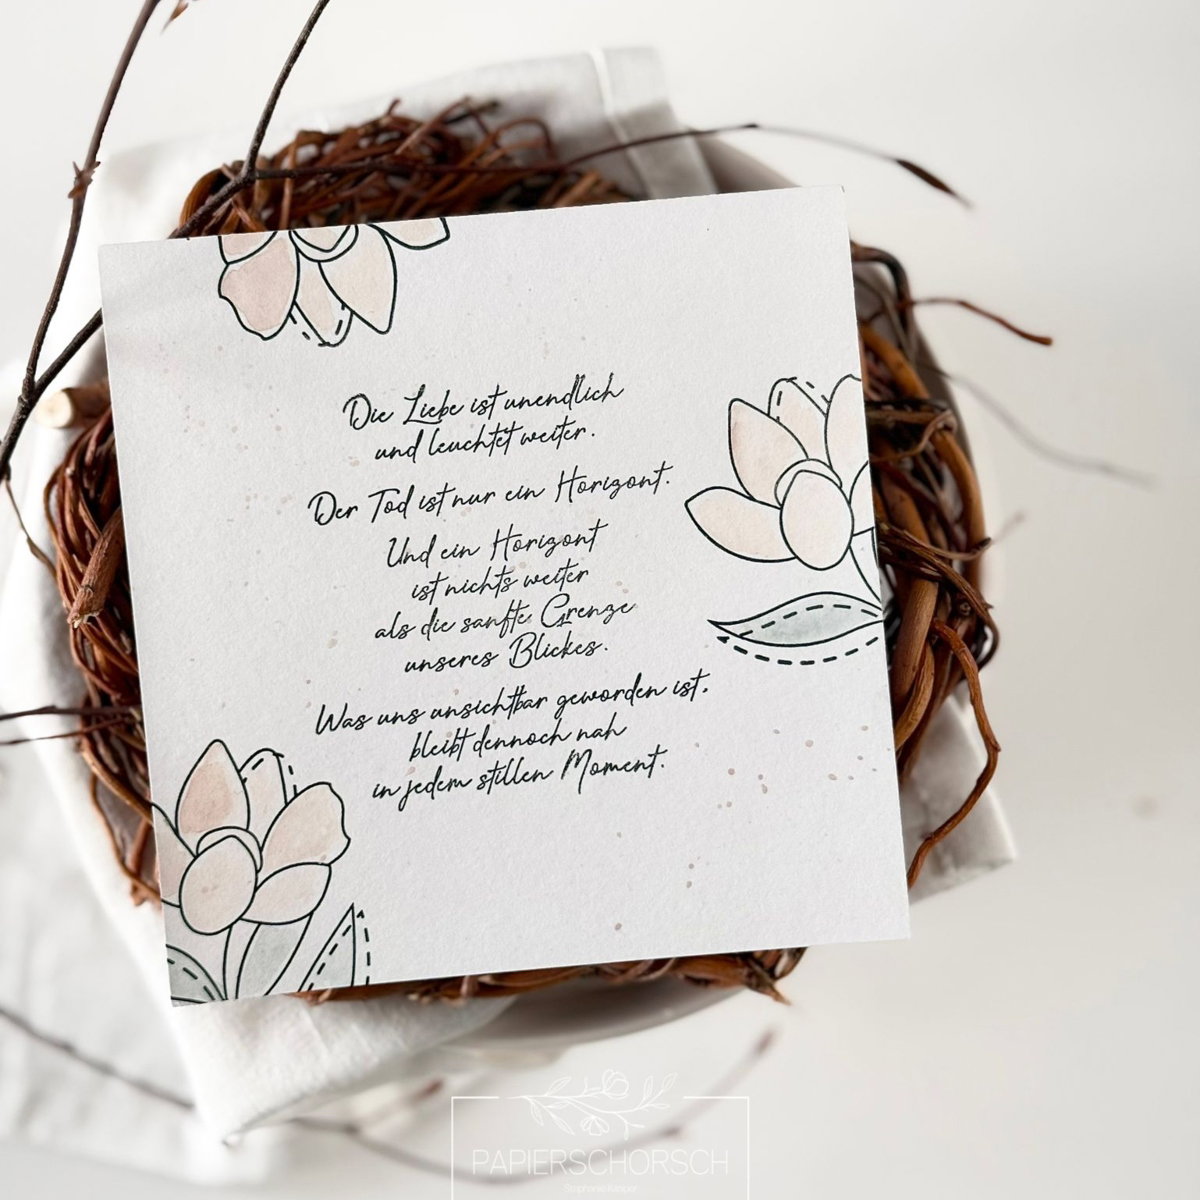 Die Liebe ist unendlich
und leuchtet weiter.
Der Tod ist nur ein Horizont.
Und ein Horizont
ist nichts weiter
als die sanfte Grenze
unseres Blickes.
Was uns unsichtbar geworden ist,
bleibt dennoch nah
in jedem stillen Moment.
PAPIERSCHORSCH